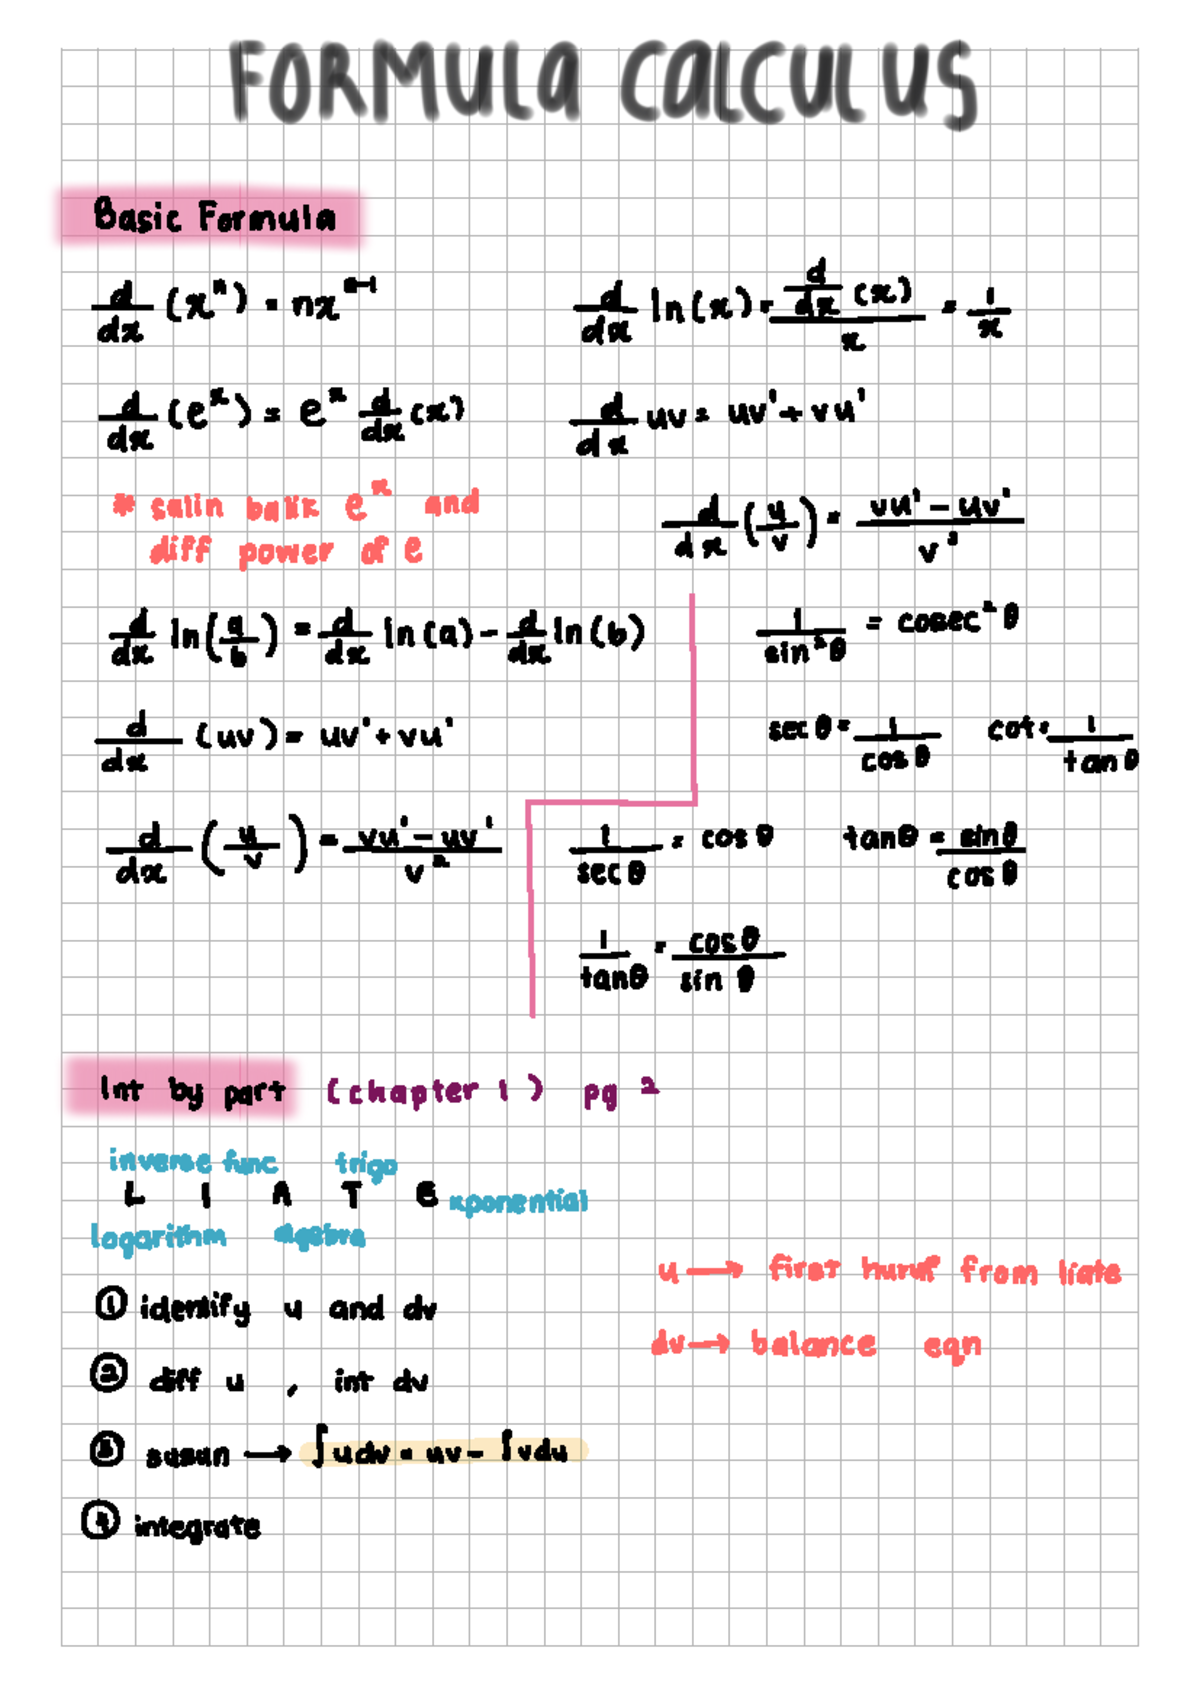 FORMULA CALCULUS
Basic Formula
d/dx (xⁿ) = nxⁿ⁻¹
d/dx ln(x) = d/dx (x) / x = 1/x
d/dx (eˣ) = eˣ d/dx (x)
d/dx uv = uv' + vu'
* salin balik eˣ and
diff power of e
d/dx (u/v) = vu' - uv' / v²
d/dx ln(a/b) = d/dx ln(a) - d/dx ln(b)
1/sin²θ = cosec²θ
d/dx (uv) = uv' + vu'
secθ = 1/cosθ
cot = 1/tanθ
d/dx (u/v) = vu' - uv' / v²
1/secθ = cosθ
tanθ = sinθ/cosθ
1/tanθ = cosθ/sinθ
Int by part (chapter 1) pg 2
inverse func trigo
L I A T E xponential
logarithm algebra
u → first huruf from liate
① identify u and dv
dv → balance eqn
② diff u , int dv
③ susun → ∫udv = uv - ∫vdu
④ integrate